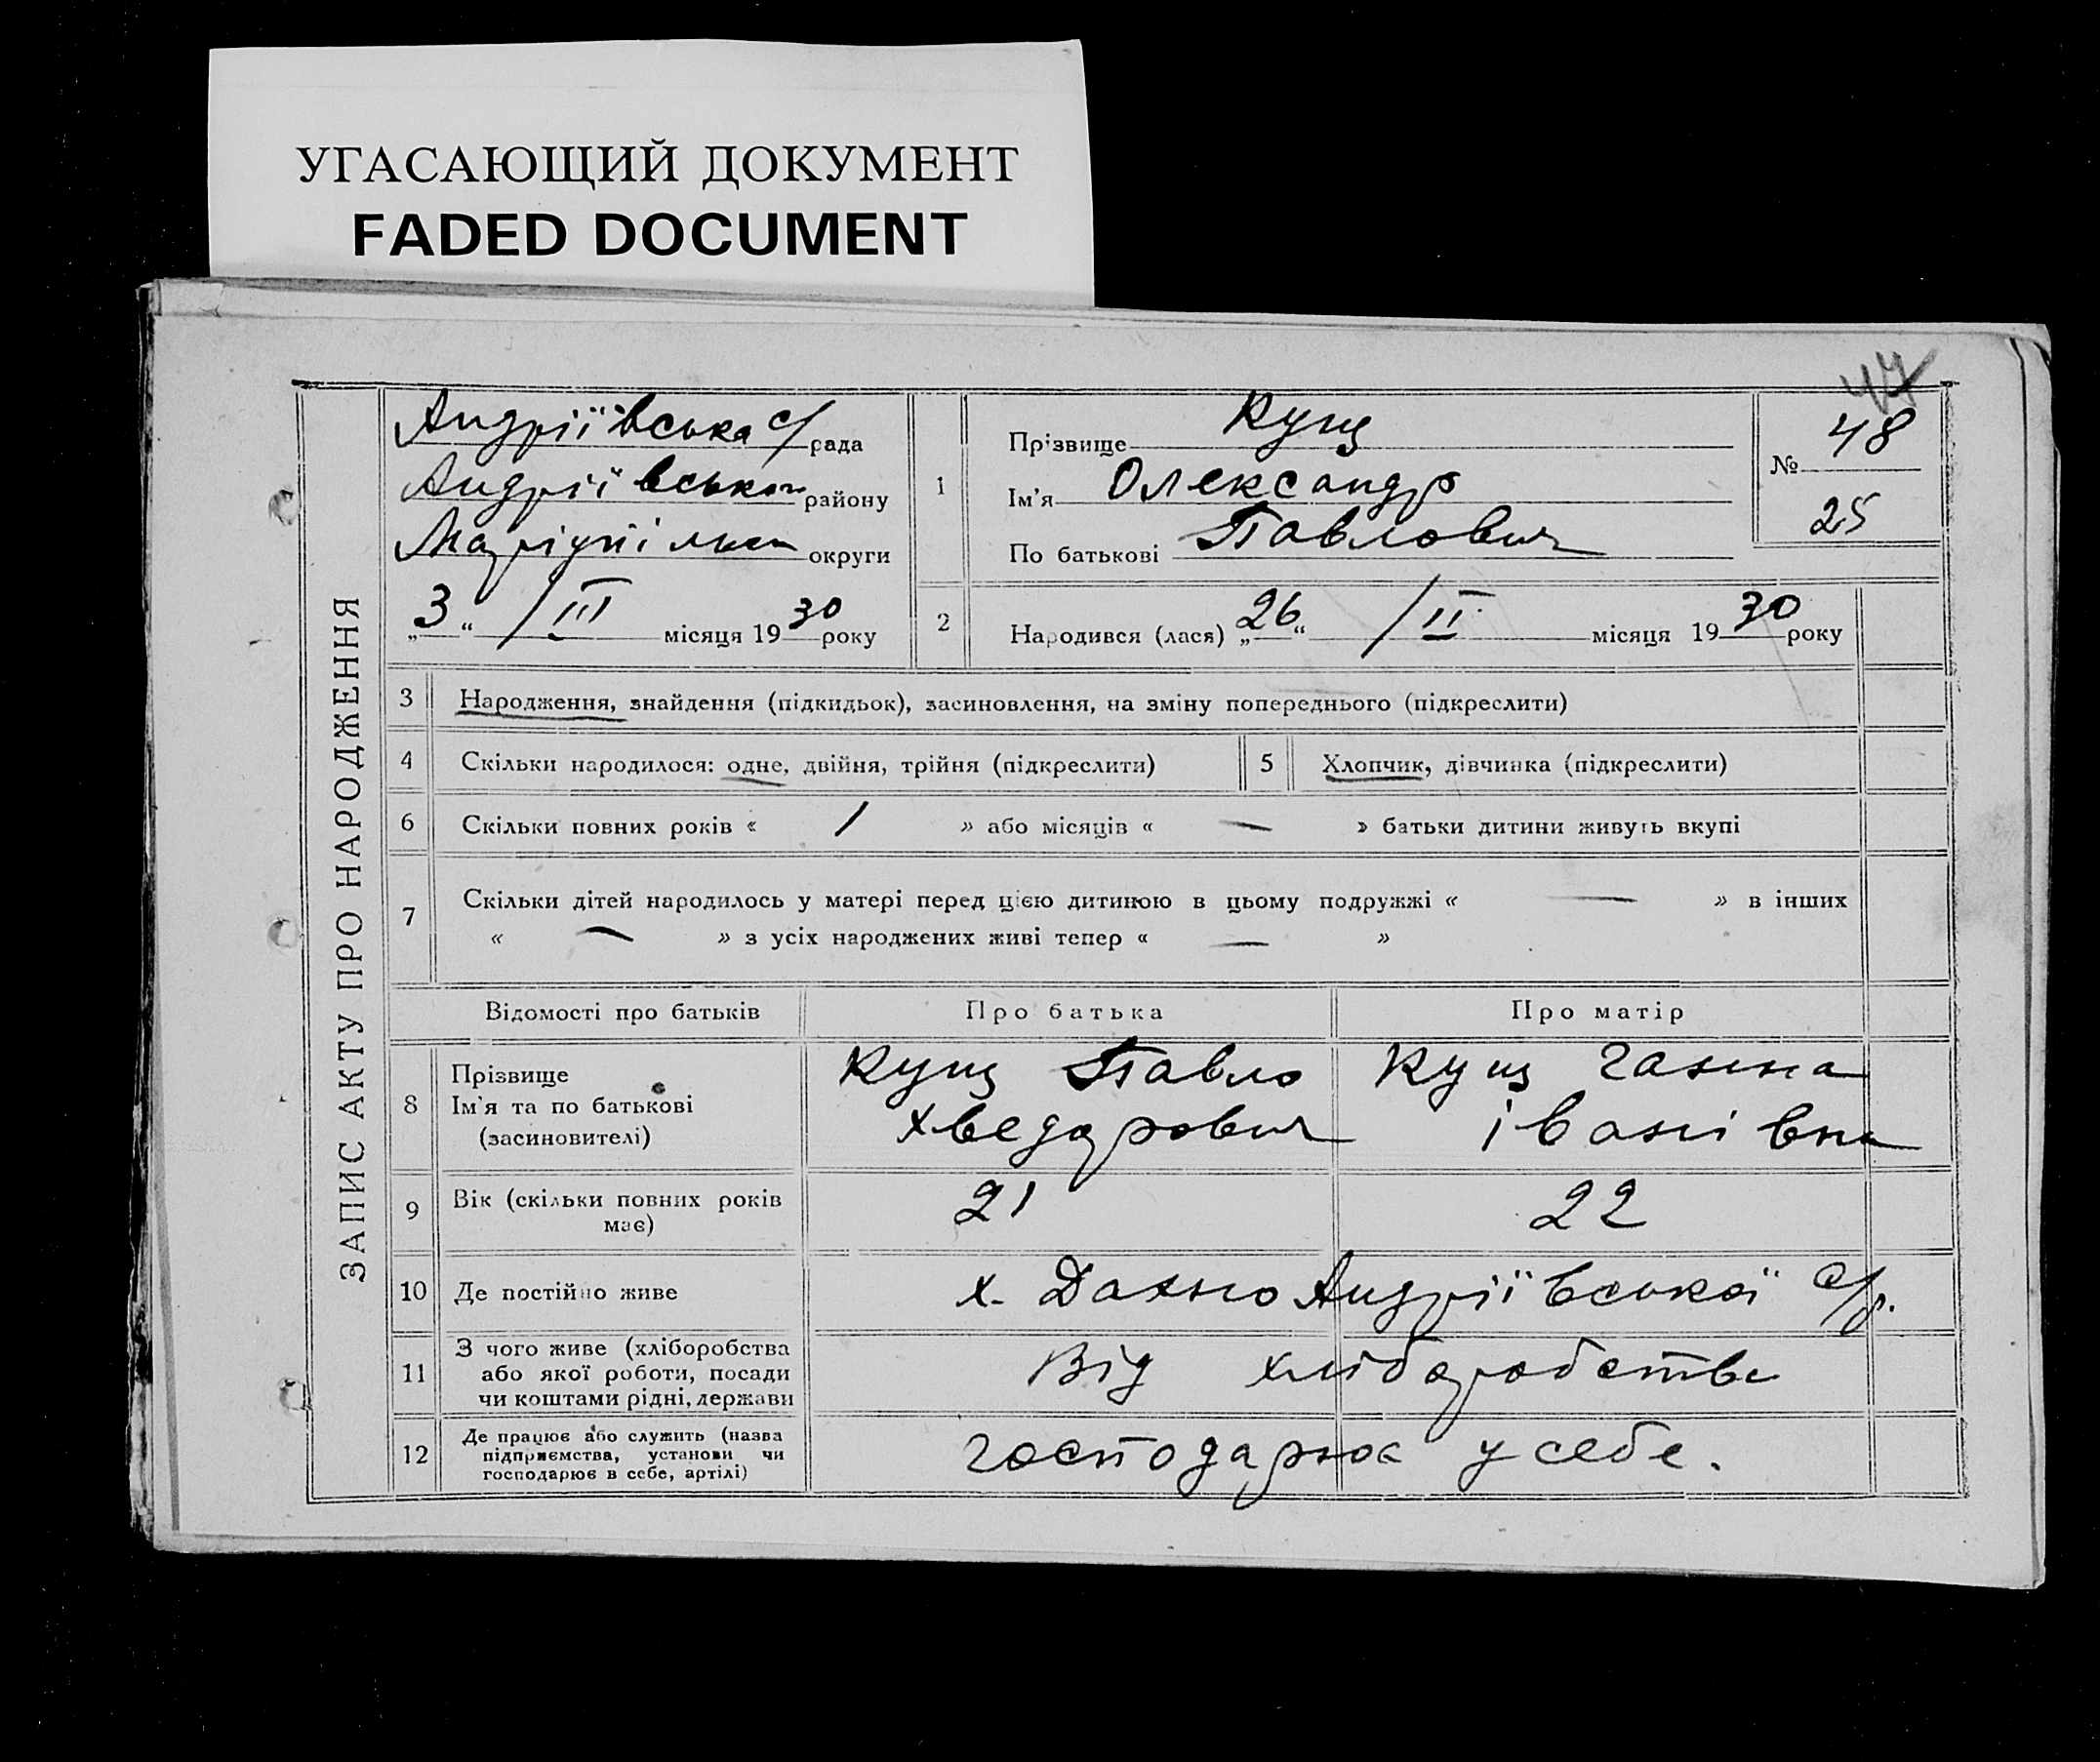 УГАСАЮЩИЙ ДОКУМЕНТ
FADED DOCUMENT
47
ЗАПИС АКТУ ПРО НАРОДЖЕННЯ
Андріївська с/рада
Андріївського району
округи
„3“ /III місяця 1930 року
1
Прізвище Кущ
Ім'я Олександр
По батькові Павлович
№ 48
25
2 Народився (лася) „26“ /II місяця 1930 року
3 Народження, знайдення (підкидьок), засиновлення, на зміну попереднього (підкреслити)
4 Скільки народилося: одне, двійня, трійня (підкреслити) 5 Хлопчик, дівчинка (підкреслити)
6 Скільки повних років « 1 » або місяців « — » батьки дитини живуть вкупі
7 Скільки дітей народилось у матері перед цією дитиною в цьому подружжі « — » в інших
« — » з усіх народжених живі тепер « — »
Відомості про батьків Про батька Про матір
8 Прізвище
Ім'я та по батькові
(засиновителі)
Кущ Павло
Хведорович
Кущ Ганна
Іванівна
9 Вік (скільки повних років
має)
21 22
10 Де постійно живе х. Дахно Андріївської с/р.
11 З чого живе (хліборобства
або якої роботи, посади
чи коштами рідні, держави
Від хліборобства
12 Де працює або служить (назва
підприємства, установи чи
господарює в себе, артілі)
господарює у себе.